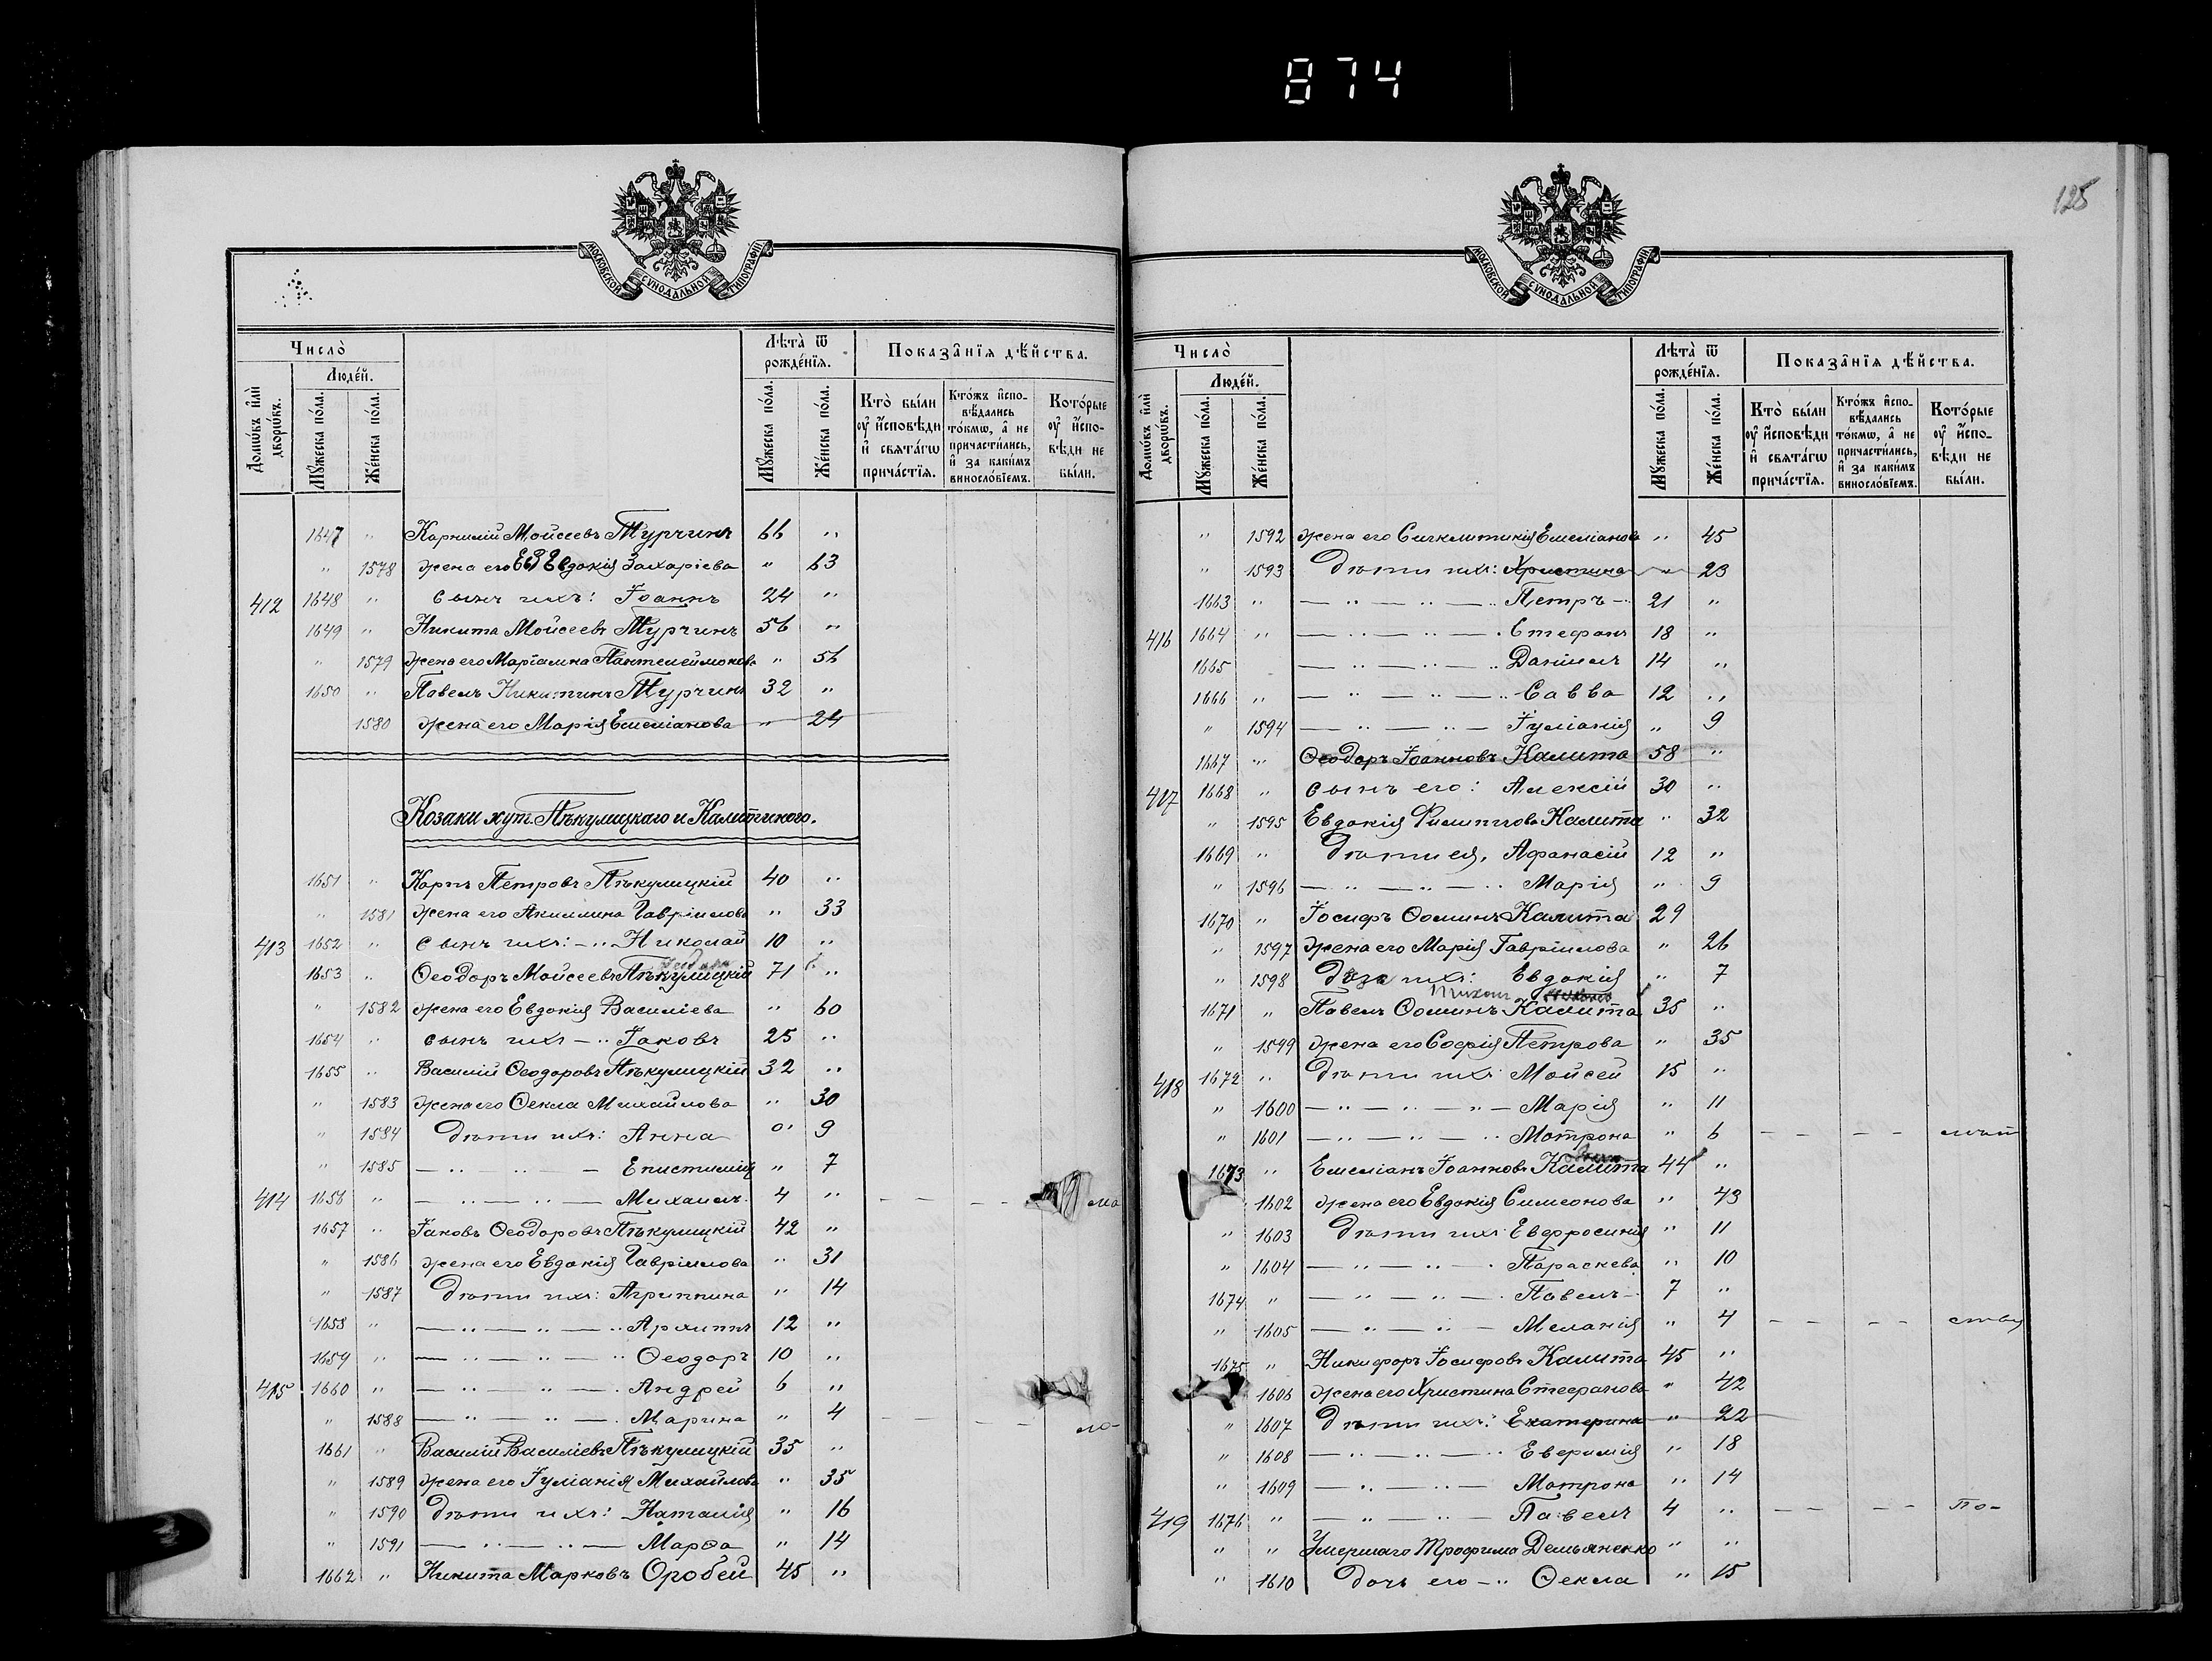 874
125
МОСКОВСКОЙ СѴНОДАЛЬНОЙ ТИПОГРАФІИ
Число̀
Люде́й.
Домѡ́въ и҆лѝ дворѡ́въ.
Мꙋ́жеска по́ла.
Же́нска по́ла.
Лѣта̀ ѿ рожде́нїѧ.
Мꙋ́жеска по́ла.
Же́нска по́ла.
Показа̂нїѧ дѣ́йства.
Кто̀ бы́ли ᲂу҆ и҆́сповѣди и҆ свѧта́гѡ прича́стїѧ.
Кто́жъ и҆спо-вѣ́дались то́кмѡ, а҆ не причасти́лись, и҆ за каки́мъ виносло́вїемъ.
Кото́рые ᲂу҆ и҆́спо-вѣди не бы́ли.
1647 " Карнилій Моѵсеевъ Турчинъ 66 "
" 1578 жена его Евдокія Захаріева " 63
412 1648 " сынъ ихъ: Іоаннъ 24 "
1649 " Никита Моѵсеевъ Турчинъ 56 "
" 1579 жена его Маріамна Пантелеимонова " 56
1650 " Павелъ Никитинъ Турчинъ 32 "
1580 жена его Марія Емеліанова " 24
Козаки хут. Пѣкулицкаго и Калитиного.
1651 " Карпъ Петровъ Пѣкулицкій 40 "
" 1581 жена его Акилина Гавріилова " 33
413 1652 " сынъ ихъ: - " Николай 10 "
1653 " Ѳеодоръ Моѵсеевъ Пѣкулицкій 71 "
" 1582 жена его Евдокія Василіева " 60
1654 " сынъ ихъ - " Іаковъ 25 "
1655 " Василій Ѳеодоровъ Пѣкулицкій 32 "
" 1583 жена его Ѳекла Михайлова " 30
" 1584 дѣти ихъ: Анна " 9
" 1585 — " — " — Епистимія " 7
414 1656 " — " — " — Михаилъ 4 " - - - - ма
1657 " Іаковъ Ѳеодоровъ Пѣкулицкій 42 "
" 1586 жена его Евдокія Гавріилова " 31
" 1587 дѣти ихъ: Агриппина " 14
1658 " — " — " — " Архиппъ 12 "
1659 " — " — " — " Ѳеодоръ 10 "
415 1660 " — " — " — Андрей 6 "
" 1588 — " — " — Марина " 4 - - - ло-
1661 " Василій Василіевъ Пѣкулицкій 35 "
" 1589 жена его Іуліанія Михайлова " 35
" 1590 дѣти ихъ: Наталія " 16
" 1591 — " — " — Марѳа " 14
1662 " Никита Марковъ Оробей 45 "
МОСКОВСКОЙ СѴНОДАЛЬНОЙ ТИПОГРАФІИ
Число̀
Люде́й.
Домѡ́въ и҆лѝ дворѡ́въ.
Мꙋ́жеска по́ла.
Же́нска по́ла.
Лѣта̀ ѿ рожде́нїѧ.
Мꙋ́жеска по́ла.
Же́нска по́ла.
Показа̂нїѧ дѣ́йства.
Кто̀ бы́ли ᲂу҆ и҆́сповѣди и҆ свѧта́гѡ прича́стїѧ.
Кто́жъ и҆спо-вѣ́дались то́кмѡ, а҆ не причасти́лись, и҆ за каки́мъ виносло́вїемъ.
Кото́рые ᲂу҆ и҆́спо-вѣди не бы́ли.
" 1592 жена его Сигклитикія Емеліанова " 45
" 1593 дѣти ихъ: Христина " 23
1663 " — " — " — " Петръ - 21 "
416 1664 " — " — " — Стефанъ 18 "
1665 — " — " — " Даніилъ 14 "
1666 " — " — " — " Савва 12 "
" 1594 — " — " — Іуліанія " 9
1667 " Ѳеодоръ Іоанновъ Калита 58 "
417 1668 " сынъ его: Алексій 30 "
" 1595 Евдокія Филиппова Калита " 32
1669 " дѣти ея, Аѳанасій 12 "
" 1596 — " — " — " Марія " 9
1670 " Іосифъ Ѳоминъ Калита 29
" 1597 жена его Марія Гавріилова " 26
" 1598 ихъ: Евдокія " 7
1671 " Павелъ Ѳоминъ Калита 35 "
" 1599 жена его Софія Петрова " 35
418 1672 " дѣти ихъ Моѵсей 15 "
" 1600 — " — " — " — Марія " 11
" 1601 — " — " — " Мотрона " 6 - - - -
1673 " Емеліанъ Іоанновъ Калита 44 "
1602 жена его Евдокія Симеонова " 43
" 1603 дѣти ихъ Евфросинія " 11
" 1604 — " — " — Параскева " 10
1674 " — " — " — Павелъ - 7 "
" 1605 — " — " — Меланія " 4 - - - - ства
1675 " Никифоръ Іосифовъ Калита 45 "
1606 жена его Христина Стефанова " 42
" 1607 дѣти ихъ: Екатерина " 22
" 1608 — " — " — " Евфимія " 18
" 1609 — " — " — Мотрона " 14
419 1676 " — " — " — Павелъ 4 " - - - - По-
" " Умершаго Трофима Демьяненко " "
" 1610 дочь его - " Ѳекла " 15